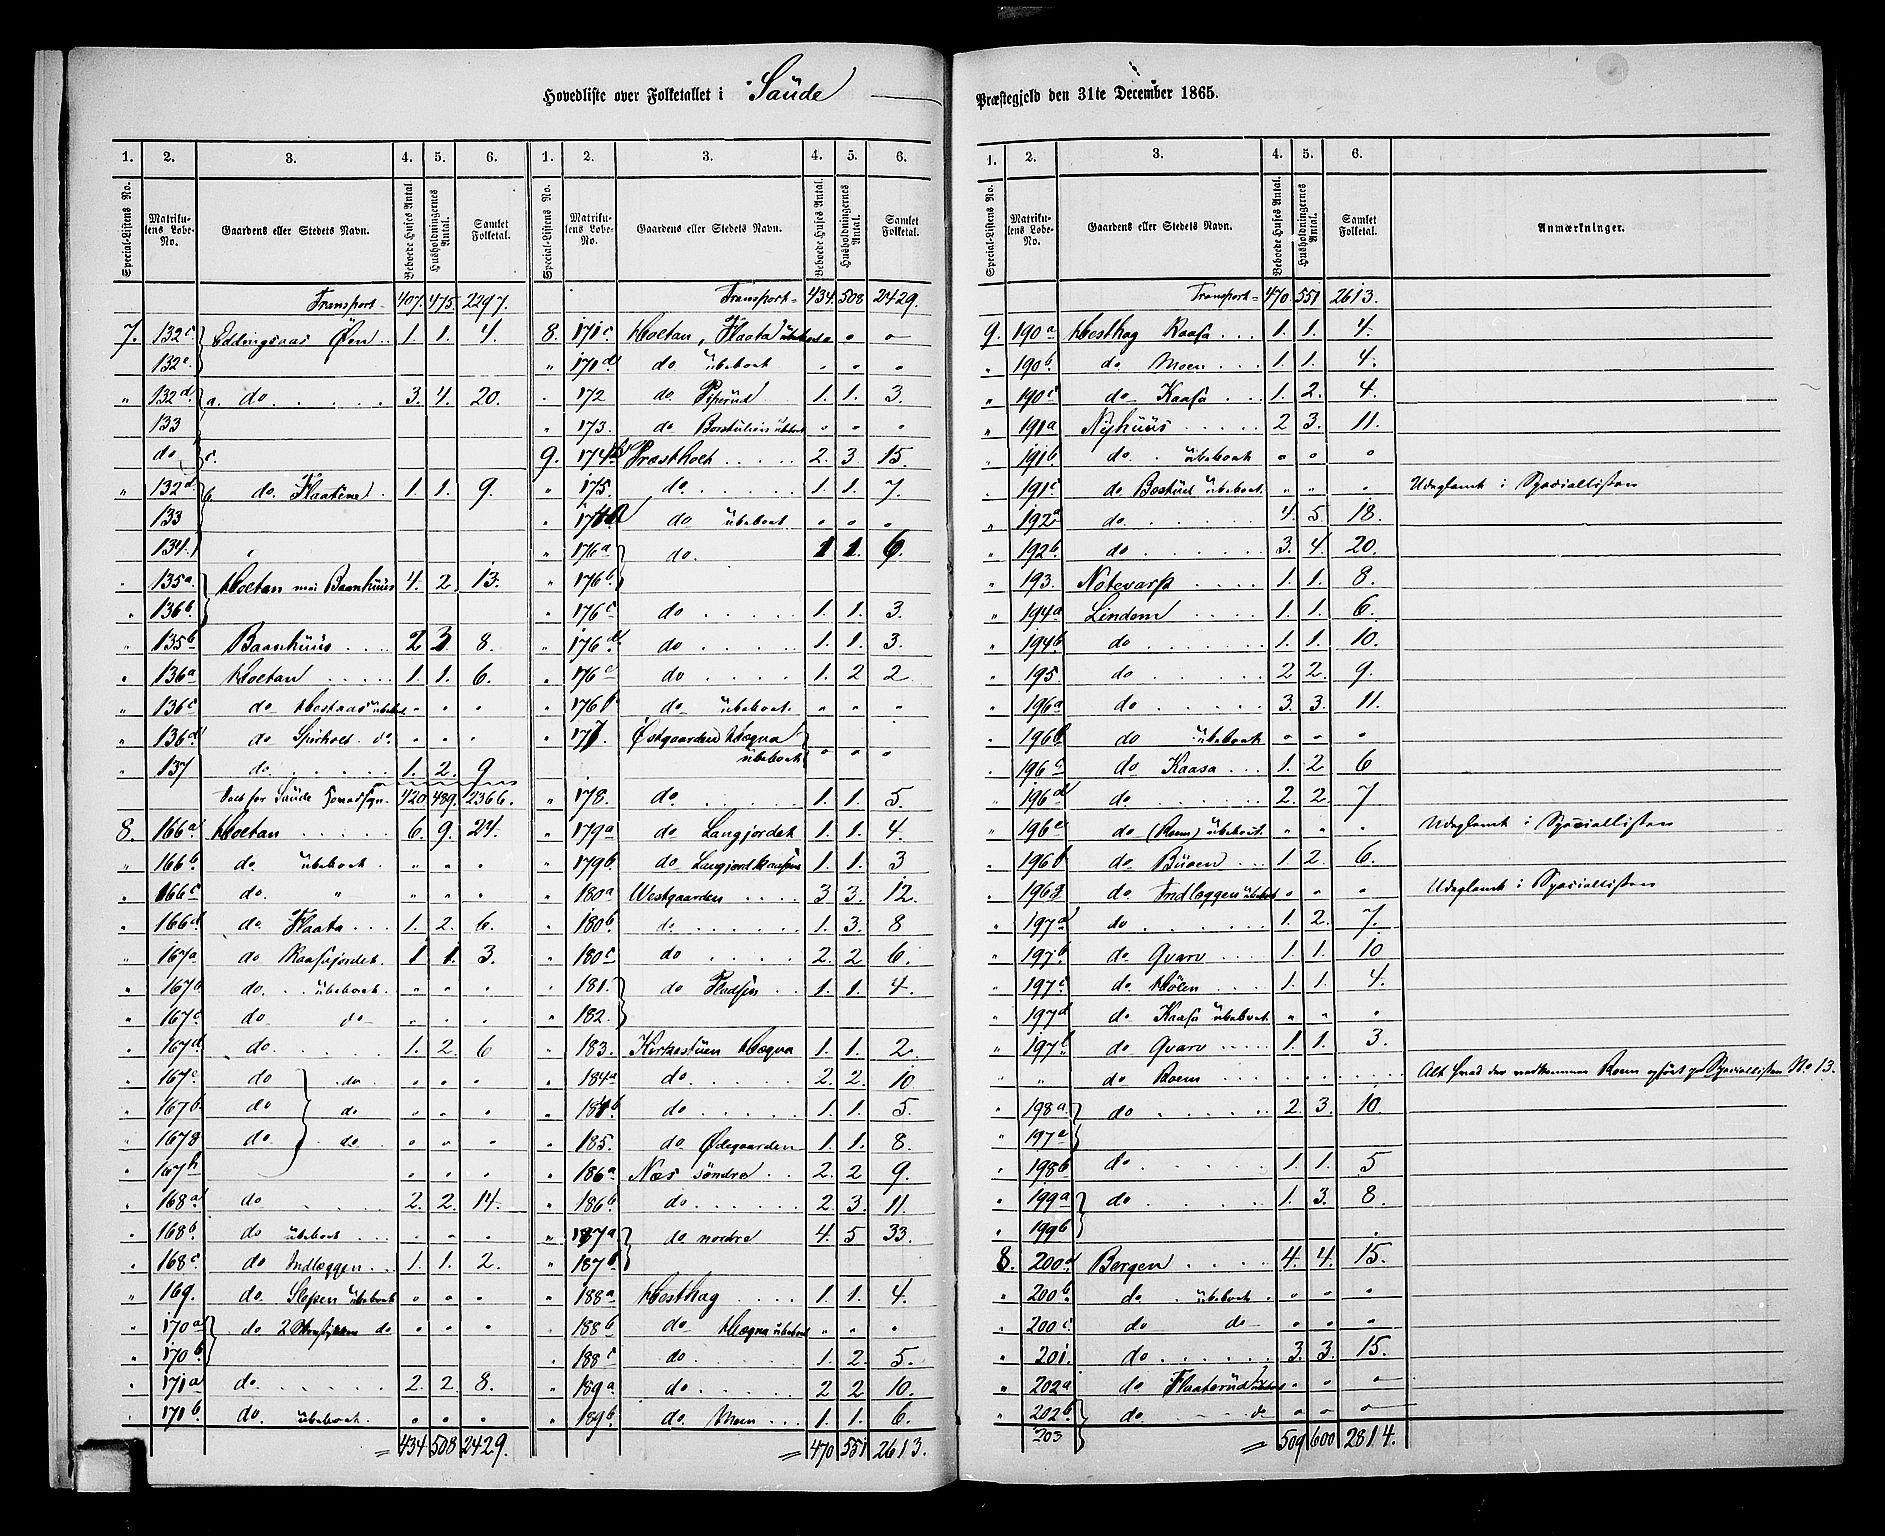 Hovedliste over Folketallet i Saude
1. 2. 3. 4. 5. 6. 1. 2. 3. 4. 5. 6.
Special-Listens No. Matrikulens Løbe-No. Gaardens eller Stedets Navn. Beboede Huses Antal. Husholdningernes Antal. Samlet Folketal. Special-Listens No. Matrikulens Løbe-No. Gaardens eller Stedets Navn. Beboede Huses Antal. Husholdningernes Antal. Samlet Folketal.
Transport 407. 475. 2297.
7. 132c Eddingsaas Øen 1. 1. 4.
132e
" 132d. a. do 3. 4. 20.
133
do c.
" 132d b. do Flaatene 1. 1. 9.
133
134
" 135a Hoetan Baanhuus 4. 2. 13.
" 136b.
" 135b Baanhuus 2 3 8.
" 136a Hoetan 1. 1. 6.
" 136c do Hestaas " " "
" 136d do Spirholt do " " "
" 137 do 1. 2. 9
Saude 420 489. 2366.
8. 166a Hoetan 6. 9. 24.
" 166b do übeboet " " "
" 166c do " " " "
" 166d do Flaata 1. 2. 6.
" 167a do Kaasajordet 1 1. 3.
" 167b do übeboet " " "
" 167c do do " " "
" 167d. do 1. 2. 6
" 167e do do " " "
" 167b. do do " " "
" 167g do do " " "
" 167h " " "
" 168a do 2. 2. 14.
" 168b do übeboet " " "
" 168c do Indlæggen 1. 1. 2.
" 169. do übeboet " " "
" 170a do do " " "
" 170b.
" 171a do 2. 2. 8.
" 171b. do übeboet " " "
= 434 508 2429.
Transport 434. 508 2429.
8. 171c Hoetan, Flaata übeboet " " "
" 170d do übeboet " " "
" 172 do Piperud 1. 1. 3.
" 173. do " " "
9. 174b Præstholt 2. 3 15.
" 175. do 1. 1. 7.
" 174a do übeboet " " "
" 176a do 1 1. 6.
" 176b.
" 176c do 1. 1. 3.
" 176d do 1. 1. 3.
" 176e do 1. 2 2
" 176f do übeboet " " "
177. Østgaarden Hægna übeboet " " "
" 178. do 1. 1. 5.
" 179a do Langjordet 1. 1. 4.
" 179b. do 1. 1. 3
" 180a Westgaarden 3 3. 12.
" 180b. do 1. 3. 8
" 180c do 2. 2 6.
" 181. do Pladsen 1. 1. 4.
" 182.
" 183. Kirkestuen Hægna 1. 1. 2.
" 184a do 2. 2. 10
" 184b do 1. 1. 5.
" 185. do Ødegaarden 1. 1. 8.
" 186a Næs søndre 2. 2 9.
" 186b do 2. 3. 11.
" 187a do nordre 4. 5 33.
" 187b
" 188a Hesthag 1. 1. 4.
" 188b do Hægna übeboet " " "
" 188c do 1. 2. 5.
" 189a do 2 2 10.
" 189b. do Moen 1. 1. 6.
= 470 551 2613.
Præstegjeld den 31te December 1865.
1. 2. 3. 4. 5. 6.
Special-Listens No. Matrikulens Løbe-No. Gaardens eller Stedets Navn. Beboede Huses Antal. Husholdningernes Antal. Samlet Folketal. Anmærkninger.
Transport = 470. 551 2613.
9. 190a Hesthag Kaasa 1. 1. 4.
" 190b do Moen 1. 1. 4.
" 190c do Kaasa 1. 2. 4.
" 191a Nyhuus 2 3. 11.
" 191b do übeboet " " "
" 191c do übeboet " " " Udeglemt i Speciallisten
" 192a do 4. 5. 18.
" 192b. do 3. 4. 20.
" 193. Notevarp 1. 1. 8.
" 194a Lindem 1. 1. 6.
" 194b do 1. 1. 10.
" 195. do 2 2. 9.
" 196a do 3. 3. 11.
" 196b do übeboet " " "
" 196c do Kaasa 1. 2 6
" 196d do 2. 2. 7
" 196e do übeboet " " " Udeglemt i Speciallisten
" 196f do Büoen 1. 2. 6.
" 196g do Indlæggen übeboet " " " Udeglemt i Speciallisten
" 197a do 1. 2. 7.
" 197b do Qvarv 1. 1. 10
" 197c do Hølen 1. 1. 4.
" 197d do Kaasa übeboet " " "
" 197f. do Qvarv 1. 1. 3.
" " do Roem Alt hvad der vedkommer Roem opført paa Speciallisten No 13.
" 198a. do 2. 3. 10.
" 197e
" 198b do 1. 1. 5
" 199a do 1. 3. 8.
" 199b
8. 200a Bergen 4. 4. 15.
" 200b. do übeboet " " "
" 200c. do do " " "
" 201. do 3. 3. 15.
" 202a do Flaaterud " " "
" 202b do do " " "
203
= 509 600 2814.